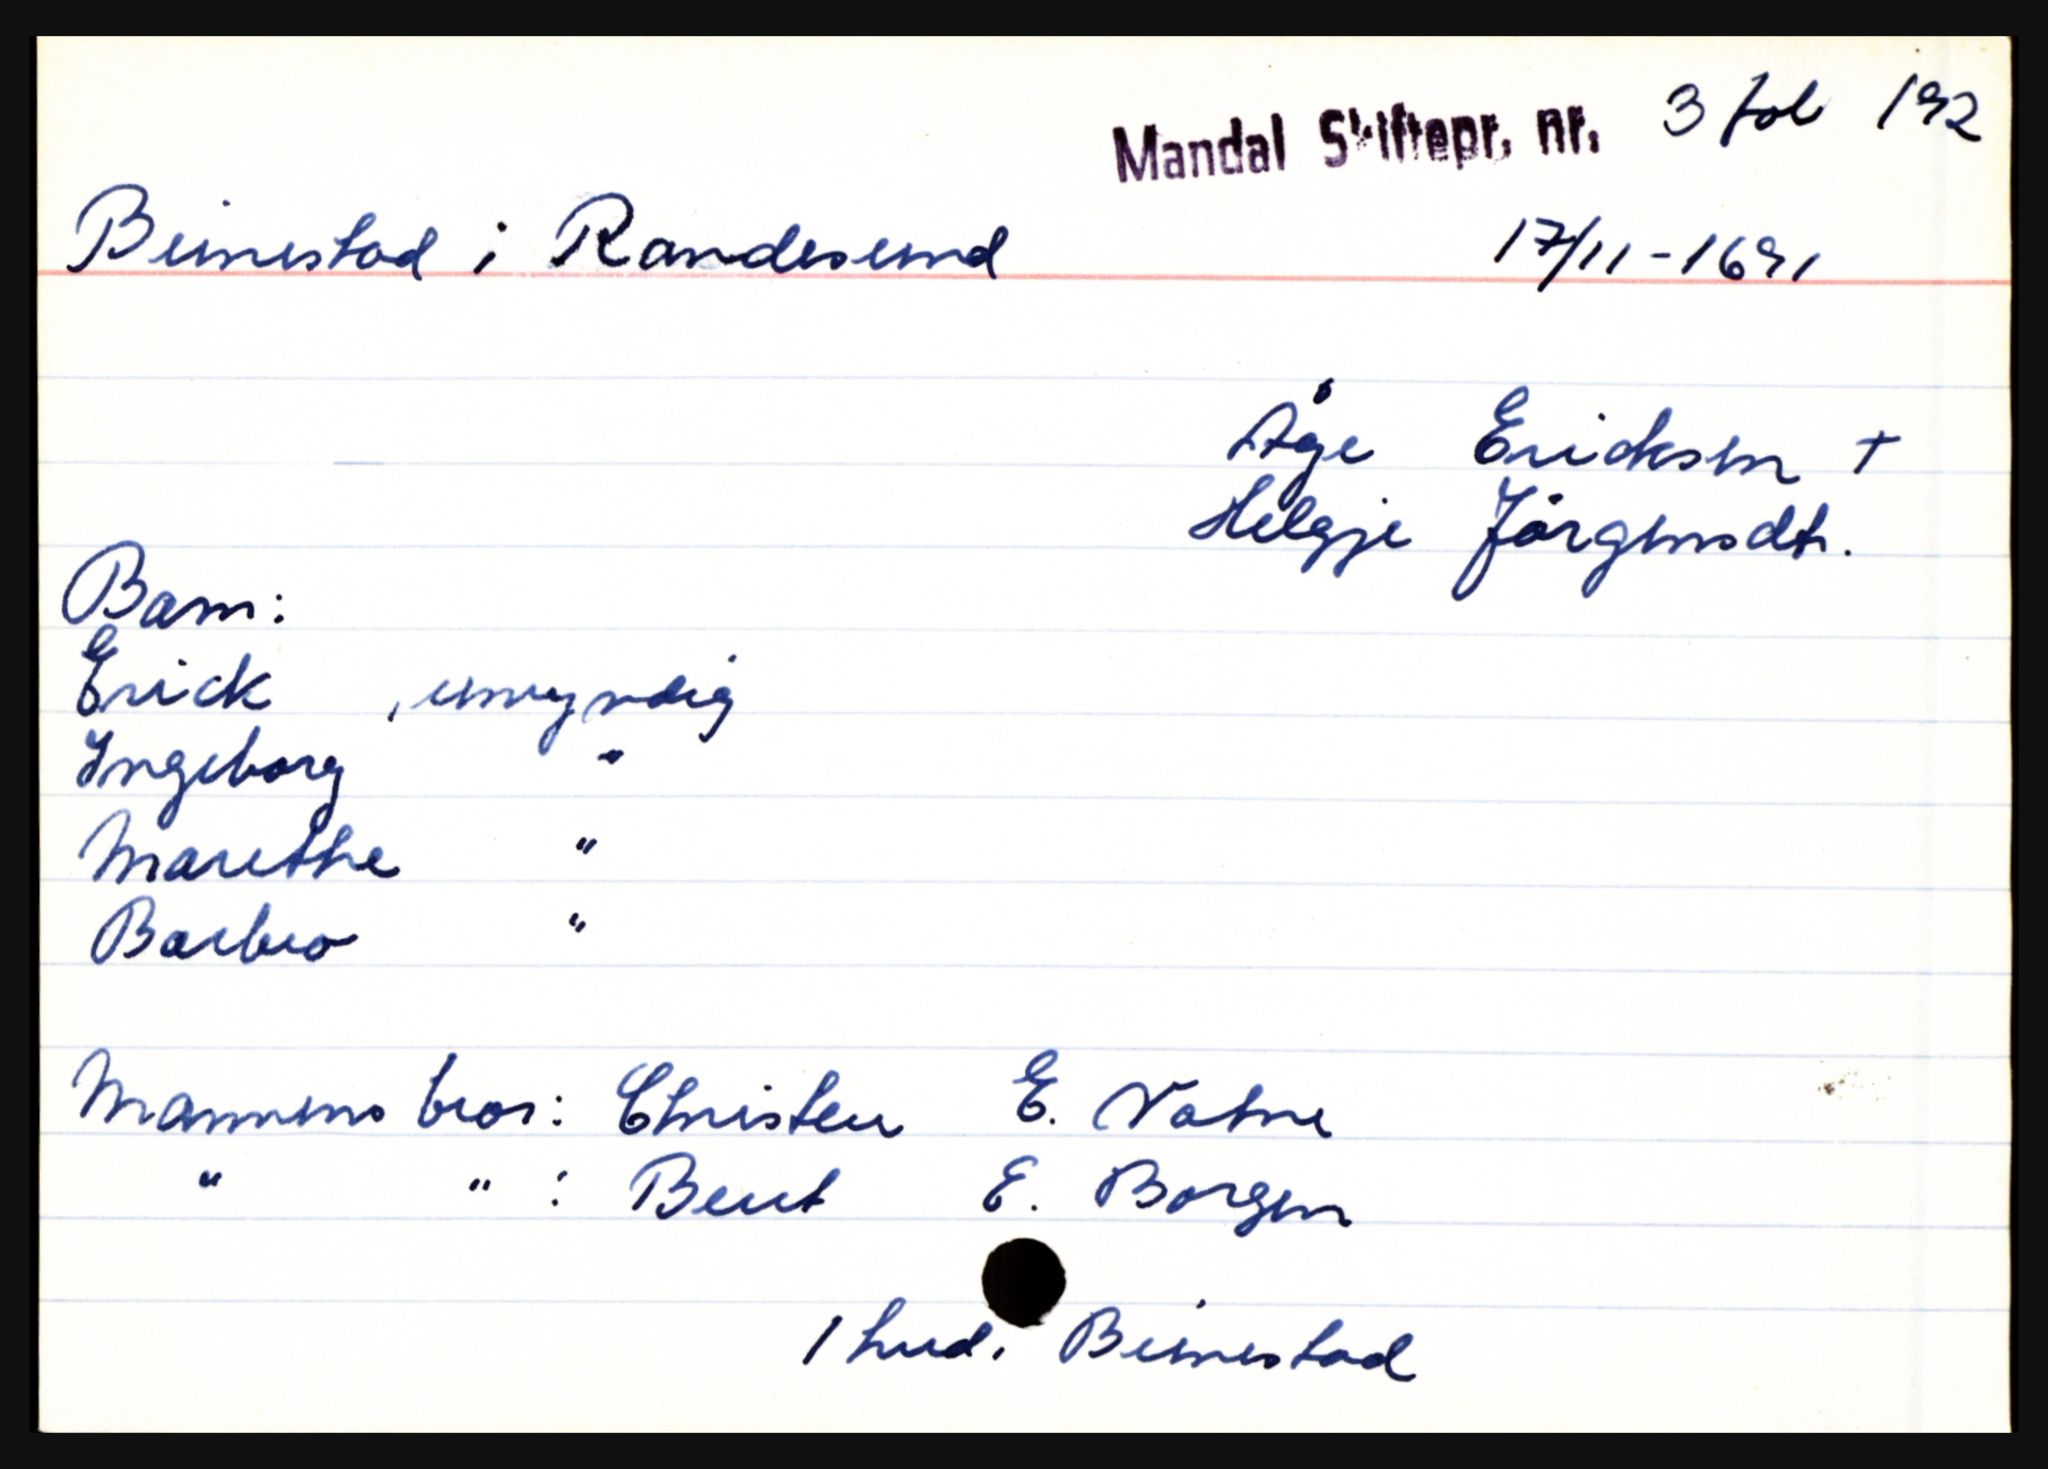 Mandal Skiftepr. nr. 3 fol 192
Beinestad i Randesund 17/11-1691
Åge Ericksen +
Helgje Jörgensdtr.
Barn:
Erick , umyndig
Ingeborg "
Marethe "
Barbro "
Mannens bror: Christen E. Vatne
" " : Bent E. Borgen
1 hud. Beinestad